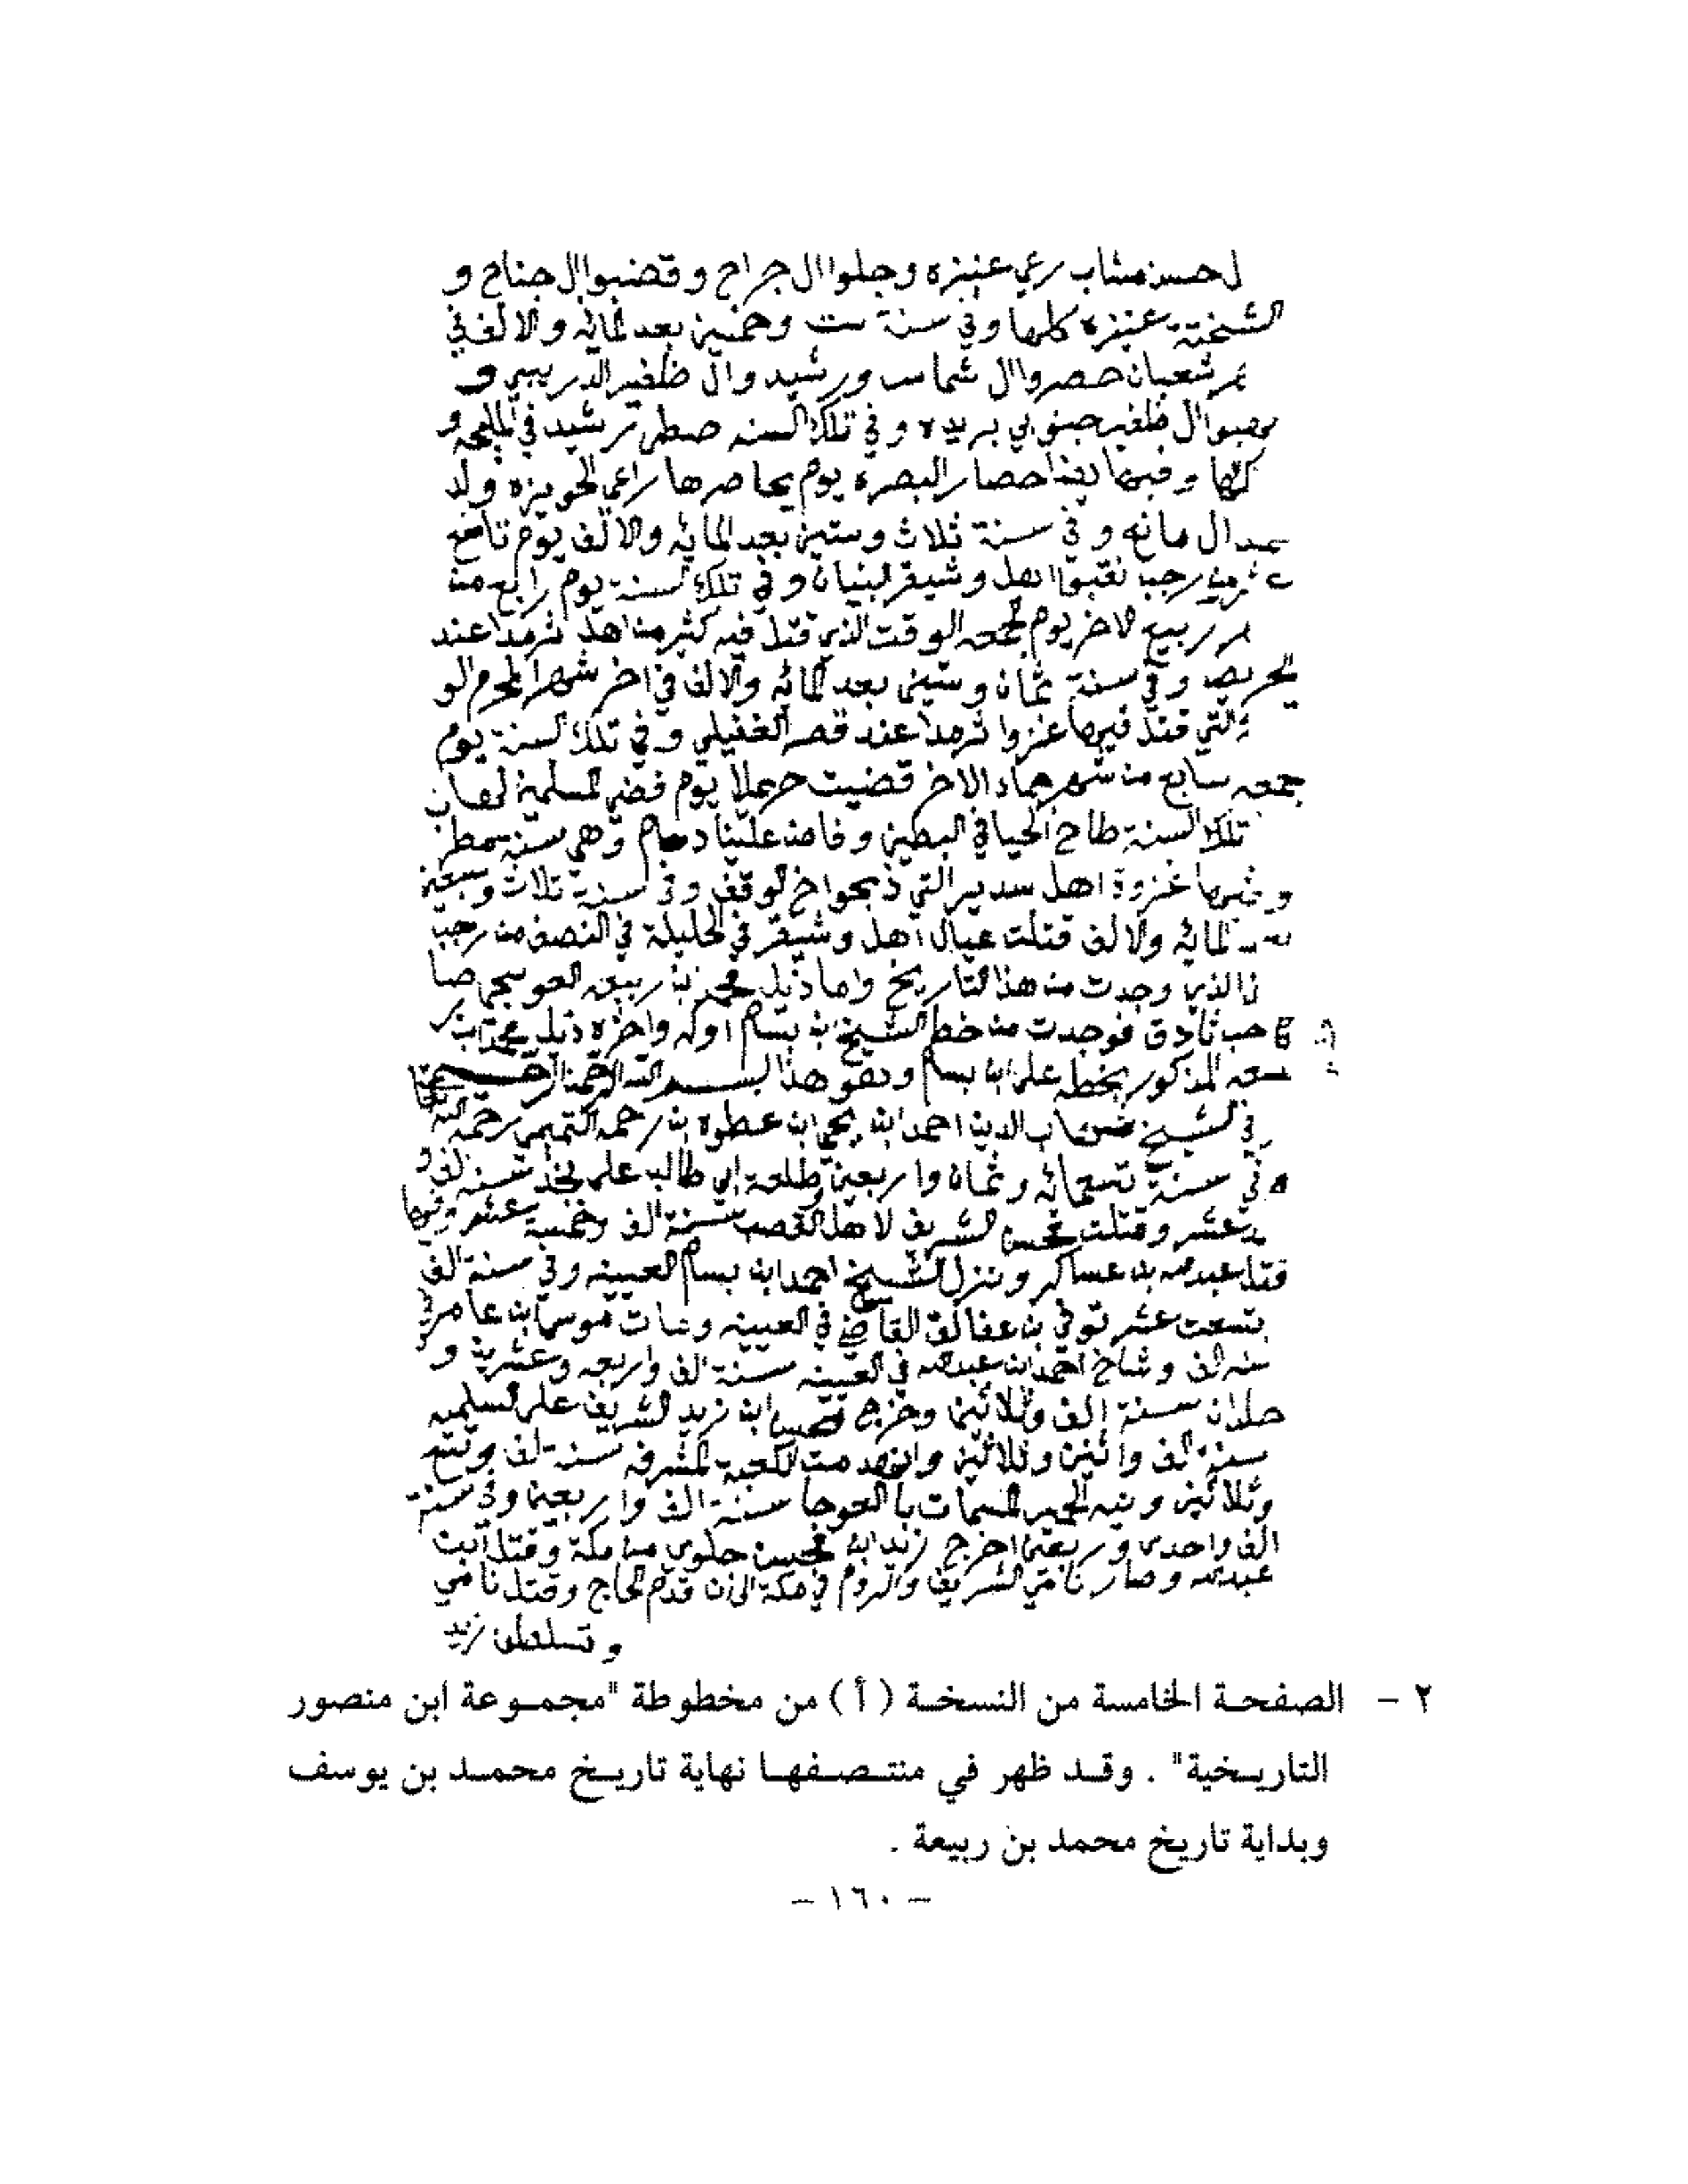 حسن مشاب رعي عنيزه وجلوا ال جراح وقضبوا ال جناح و
الشختة عنيزه كلها وفي سنة ست وخمسين بعد المائه والالف في
شعبان حصروا ال شماس ورشيد وال ظفير الدريبي و
ال ظفير جنوبي بريده وفي تلك السنه رشيد في المليحه و
كلها وفيها حصار البصره يوم يحاصرها راعي الحويزه ولد
ال مانع وفي سنة ثلاث وستين بعد المايه والالف يوم تاسع
من رجب اهل وشيقر البنيان وفي تلك السنة يوم رابع من
ربيع الاخر يوم الجمعه الوقت الذي قتل فيه كثير من اهل ثرمدا عند
وفي سنة ثمان وستين بعد المائه والالف في اخر شهر المحرم الو
التي قتل فيها غزوا ثرمدا عند قصر الغفيلي وفي تلك السنة يوم
جمعه سابع من شهر جماد الاخر قضيت حرملا يوم
تلك السنة طاح الحيا في البطين وفاض علينا وهي سنة مطر
غزوة اهل سدير التي ذبحوا في الوقف وفي سنة ثلاث وسبعين
المائه والالف قتلت عيال اهل وشيقر في الحليلة في النصف من رجب
الذي وجدت من هذا التاريخ واما ذيل محمد بن ربيعه العوسجي صا
حب ثادق فوجدت من خط الشيخ بن بسام اوله واخره ذيل محمد بن
المذكور بخطه على ابن بسام وهو هذا بسم الله الرحمن الرحيم
في الشيخ شهاب الدين احمد ابن يحي ابن عطوه بن رحمه التميمي رحمه الله
في سنة تسعمائه وثمان واربعين وطلعة ابي طالب على نجد سنة الف و
عشر وقتلت محسن الشريف لاهل القصب سنة الف وخمسة عشر وفيها
قتل عبدالله بن عساكر ونزل الشيخ احمد ابن بسام العيينه وفي سنة الف
تسعت عشر توفي بن عفالق القاضي في العيينه ومات موسى ابن عامر في
سنه الف وشاخ احمد ابن عبدالله في العيينه سنة الف واربعه وعشرين و
سنة الف وثلاثين وخرج محسن ابن زيد الشريف على السلميه
سنة الف واثنين وثلاثين وانهدمت الكعبة المشرفه سنة الف وتسع
وثلاثين وتيه الحمير المسمات بالعوجا سنة الف واربعين وفي سنة
الف واحدى وربعين اخرج زيد ابن محسن جلوي من مكة وقتل ابن
عبدالله وصار نامي الشريف والروم في مكة الى ان قدم الحاج وقتل نامي
وتسلطن زيد
٢ - الصفحة الخامسة من النسخة ( أ ) من مخطوطة "مجموعة ابن منصور
التاريخية" . وقد ظهر في منتصفها نهاية تاريخ محمد بن يوسف
وبداية تاريخ محمد بن ربيعة .
- ١٦٠ -